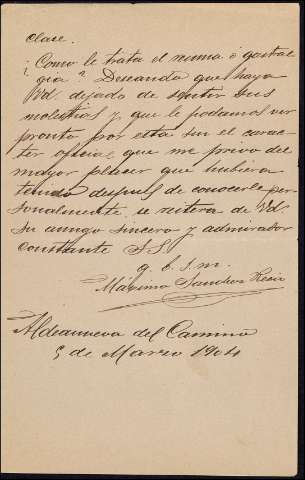 clase.
¿Como le trata el reuma ó gastral
gia? Deseando que haya
Vd. dejado de sentir sus
molestias y que le podamos ver
pronto por esta sin el carac
ter oficial que me privó del
mayor placer que hubiera
tenido despues de conocerle per
sonalmente, se reitera de Vd.
su amigo sincero y admirador
constante S. S.
q. b. s. m.
Máximo Sanchez Recio
Aldeanueva del Camino
5 de Marzo 1904